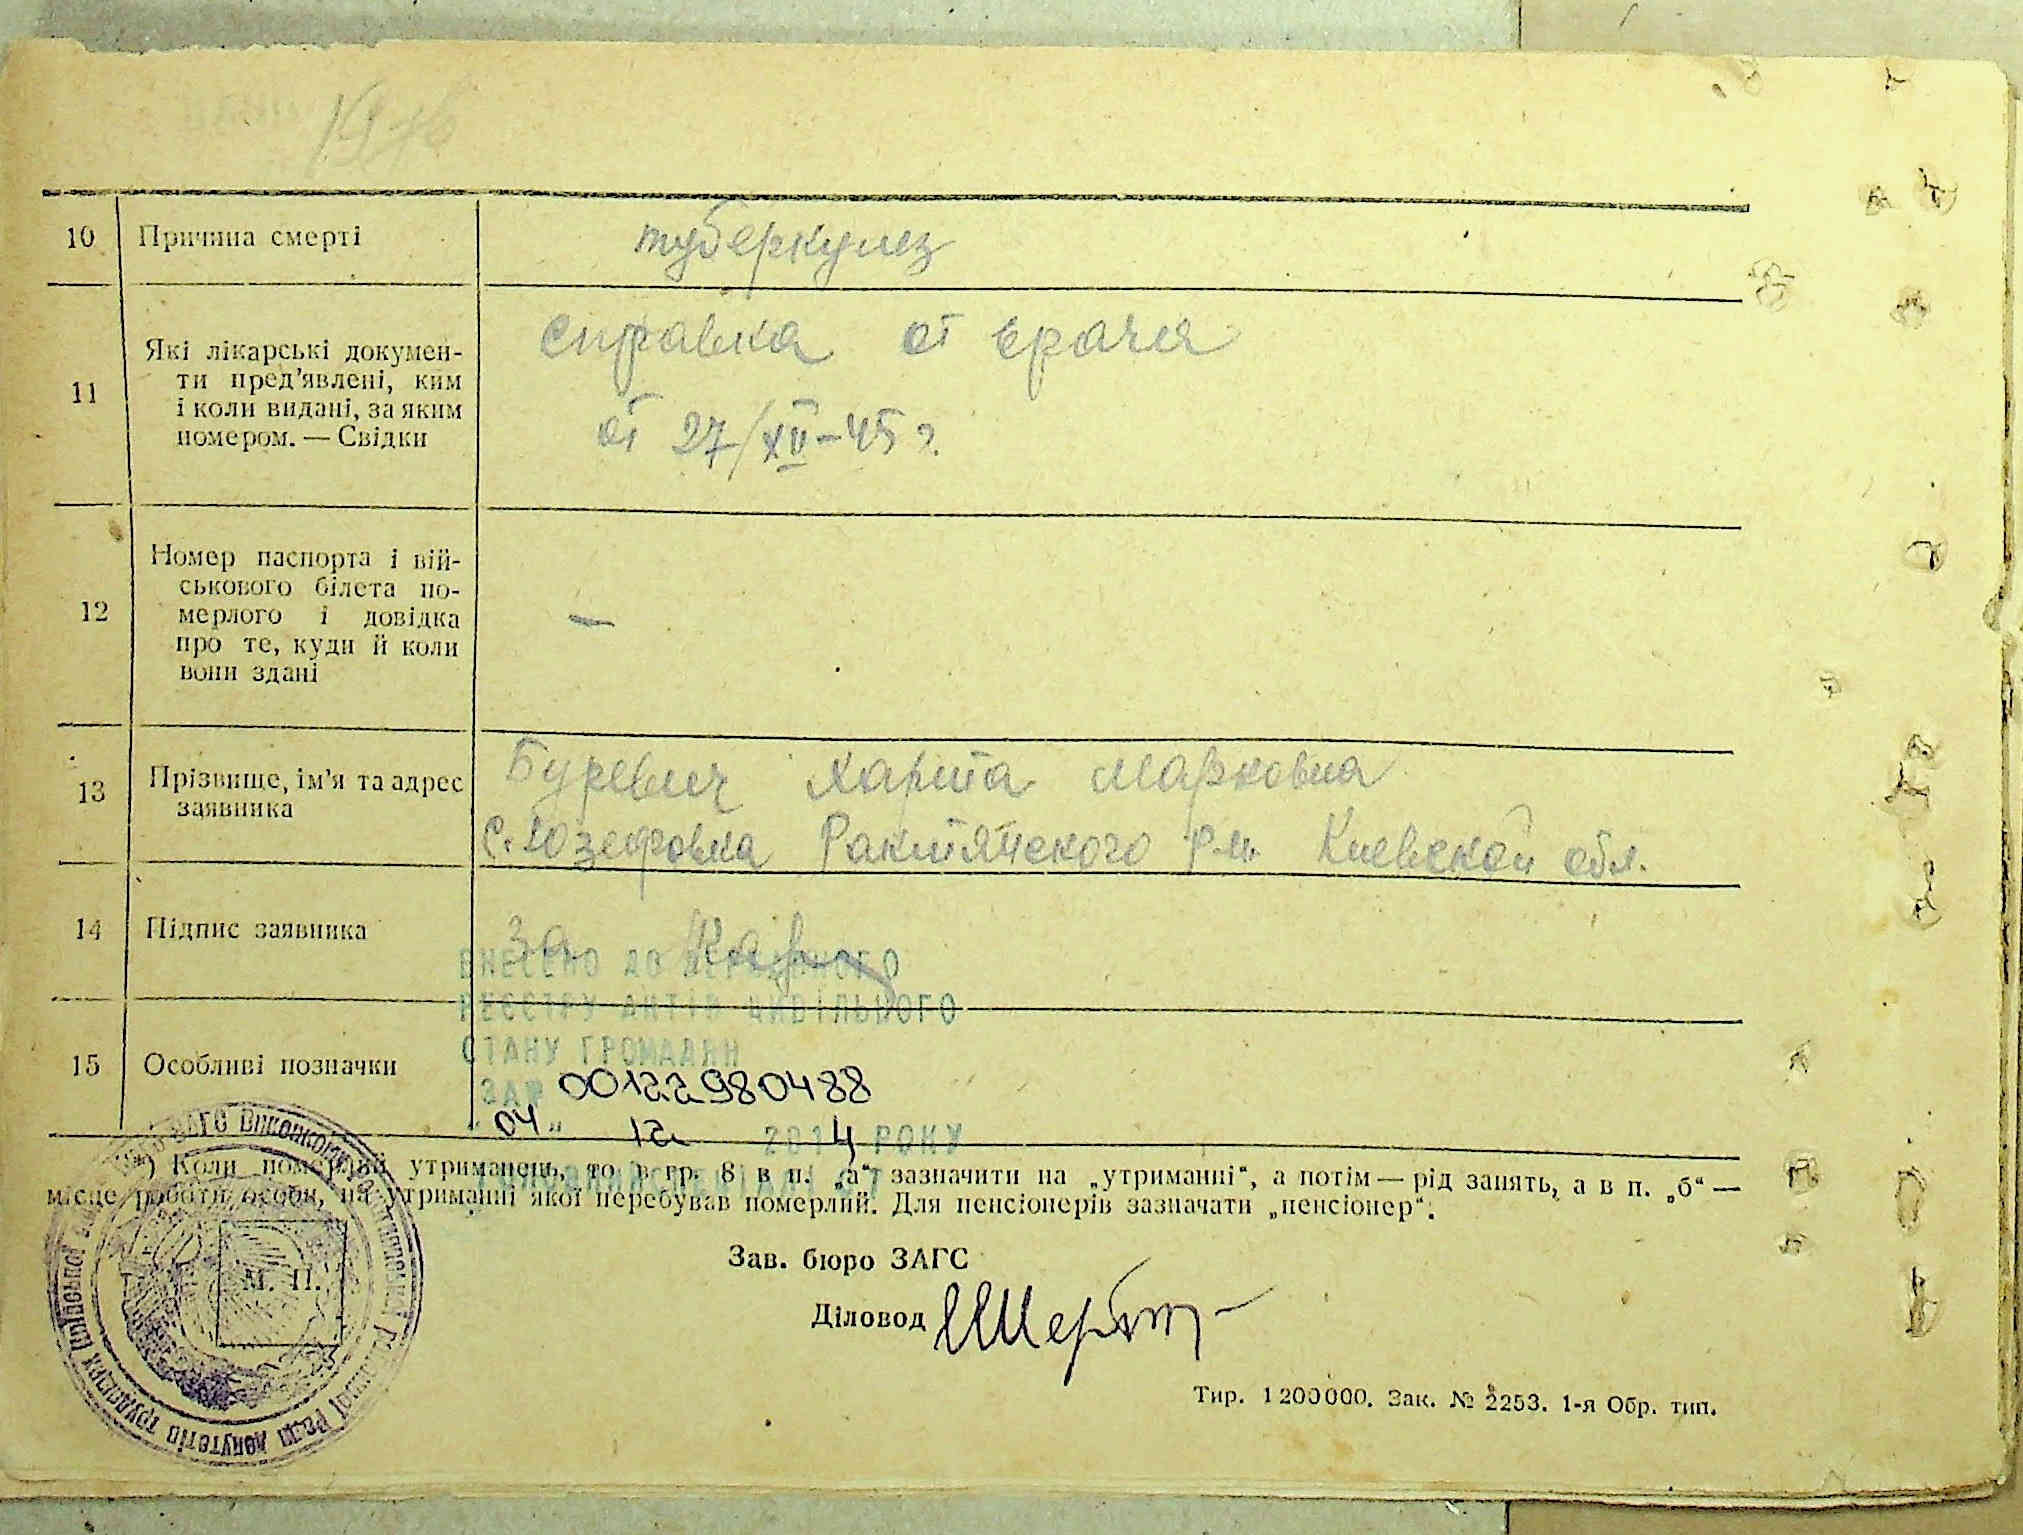 10 Причина смерті туберкулез
11 Які лікарські докумен-
ти пред'явлені, ким
і коли видані, за яким
номером. — Свідки
справка от врача
от 27/XII-45 г.
12 Номер паспорта і вій-
ськового білета по-
мерлого і довідка
про те, куди й коли
вони здані
—
13 Прізвище, ім'я та адрес
заявника
Буревич Харита Марковна
с. Юзефовка Ракитянского р-н. Киевской обл.
14 Підпис заявника За
ВНЕСЕНО ДО ДЕРЖАВНОГО
РЕЄСТРУ АКТІВ ЦИВІЛЬНОГО
СТАНУ ГРОМАДЯН
15 Особливі позначки
ЗА № 00122980488
"04" 12 2014 РОКУ
*) Коли померлий утриманець, то в гр. 8 в п. „а“ зазначити на „утриманні“, а потім — рід занять, а в п. „б“ —
місце роботи особи, на утриманні якої перебував померлий. Для пенсіонерів зазначати „пенсіонер“.
Зав. бюро ЗАГС
М. П.
Діловод
Тир. 1200000. Зак. № 2253. 1-я Обр. тип.